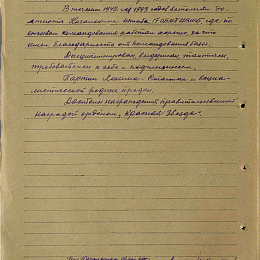 В течении 1942 и 1943 годов выполнял до-
лжность Начальника штаба где по
командования работал хорошо, за что
имел благодарности от командования базы.
Дисциплинирован, выдержан, тактичен,
требователен к себе и подчиненным.
Партии Ленина Сталина и социа-
листической родине предан.
Достоин награждения правительственной
наградой орденом "Красная Звезда".